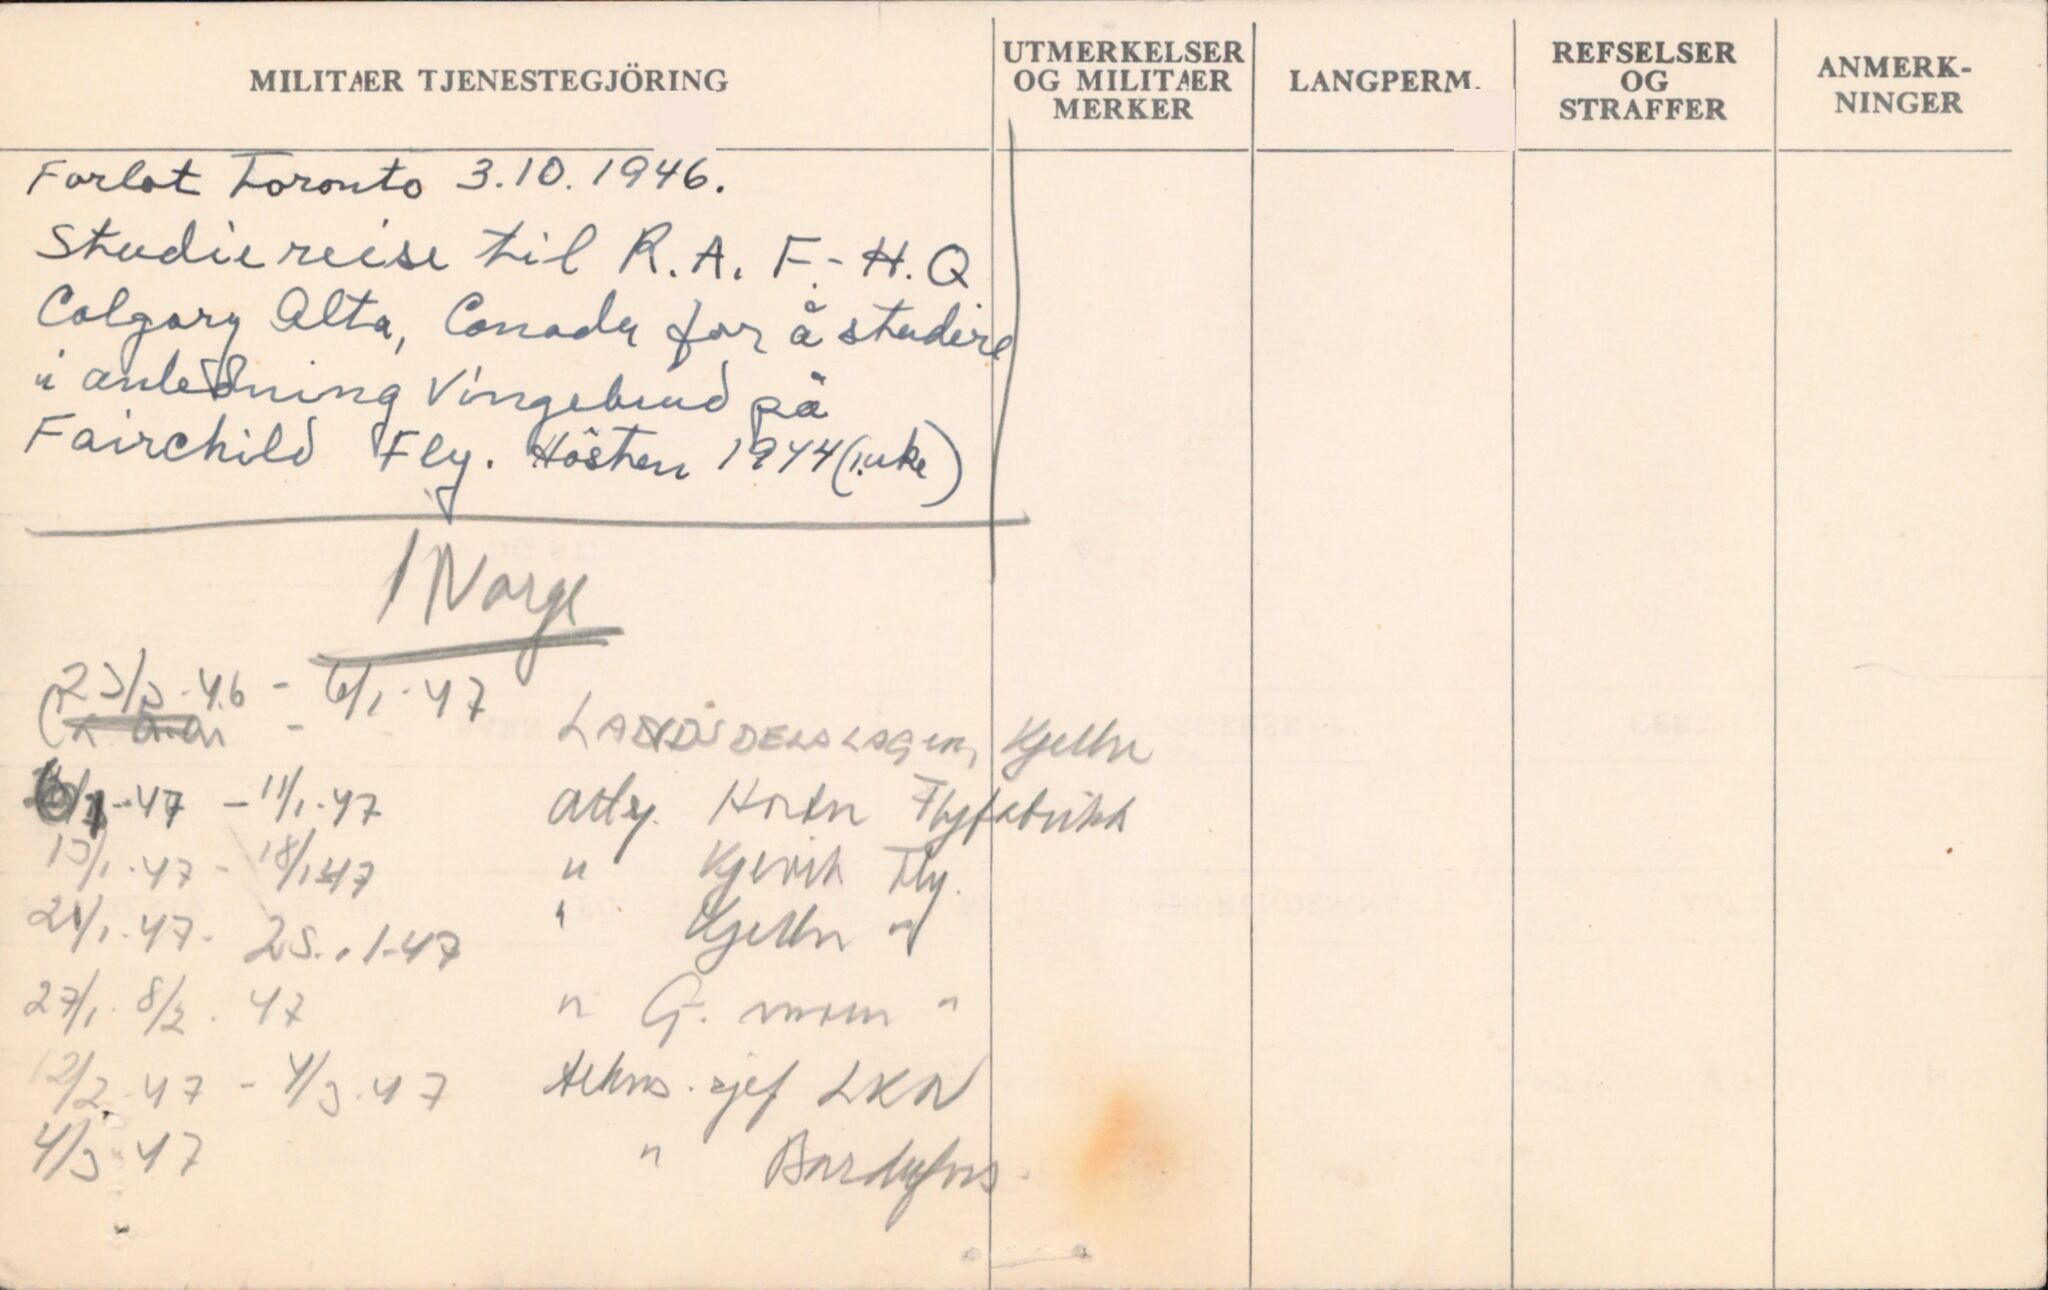 MILITÆR TJENESTEGJÖRING
UTMERKELSER
OG MILITÆR
MERKER
LANGPERM.
REFSELSER
OG
STRAFFER
ANMERK-
NINGER
Forlot Toronto 3.10.1946.
Studiereise til R.A.F.-H.Q
Calgary Alta, Canada for å studere
i anledning Vingebrud på
Fairchild Fly. Hösten 1944 (1.uke)
I Norge
23/3.46 - 6/1.47
LANDSDELSLAGER, Kjeller
6/1.47 - 11/1.47 Horten Flyfabrikk
13/1.47 - 18/1.47 " Kjevik Fly.
21/1.47. 25..1-47 " Kjeller "
27/1. 8/2. 47 " G. moen "
12/2.47 - 4/3.47 sjef LKN
4/3 47 " Bardufoss.